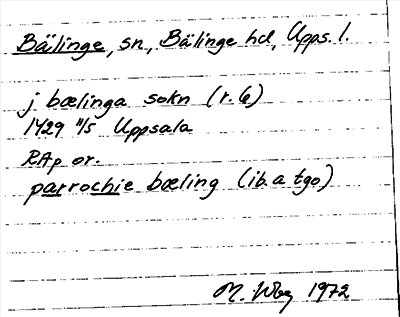 Bälinge, sn, Bälinge hd, Upps. l.
j bælinga sokn (r. 6)
1429 11/5 Uppsala
RAp or.
parrochie bæling (ib. a tgo)
M. Wbg 1972